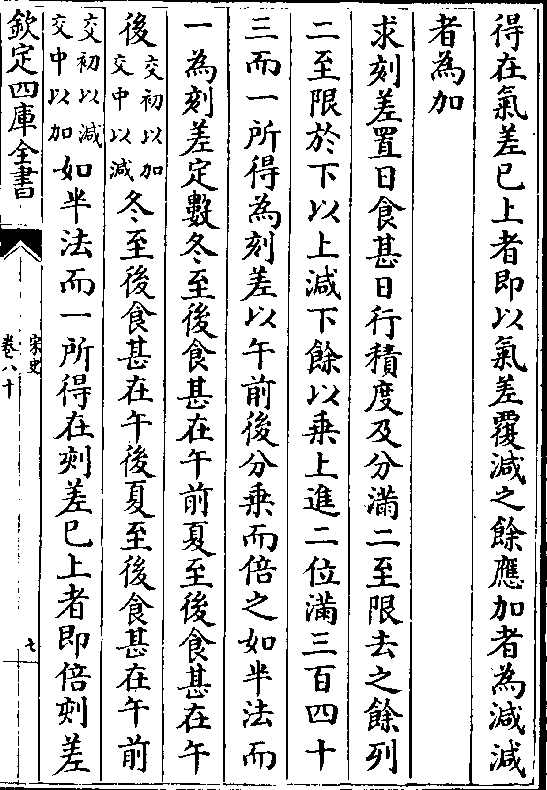 得在氣差已上者即以氣差覆減之餘應加者為減減
者為加
求刻差置日食甚日行積度及分滿二至限去之餘列
二至限於下以上減下餘以乗上進二位滿三百四十
三而一所得為刻差以午前後分乗而倍之如半法而
一為刻差定數冬至後食甚在午前夏至後食甚在午
後交初以加交中以減冬至後食甚在午後夏至後食甚在午前
交初以減交中以加如半法而一所得在刻差已上者即倍刻差
欽定四庫全書
宋史
卷八十
七